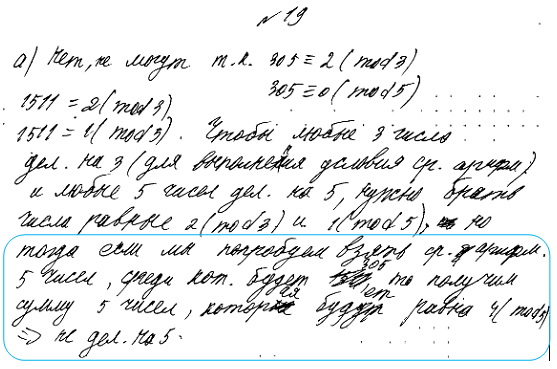 № 19
а) Нет, не могут т.к. 305 ≡ 2 (mod 3)
305 ≡ 0 (mod 5)
1511 ≡ 2 (mod 3)
1511 ≡ 1 (mod 5). Чтобы любые 3 числа
дел. на 3 (для выполнения условия ср. арифм)
и любые 5 чисел дел. на 5, нужно брать
числа равные 2 (mod 3) и 1 (mod 5), но
тогда если мы попробуем взять ср. арифм.
5 чисел, среди кот. будет 305, то получим
сумму 5 чисел, которая будет равна 4 (mod 5)
=> не дел. на 5.